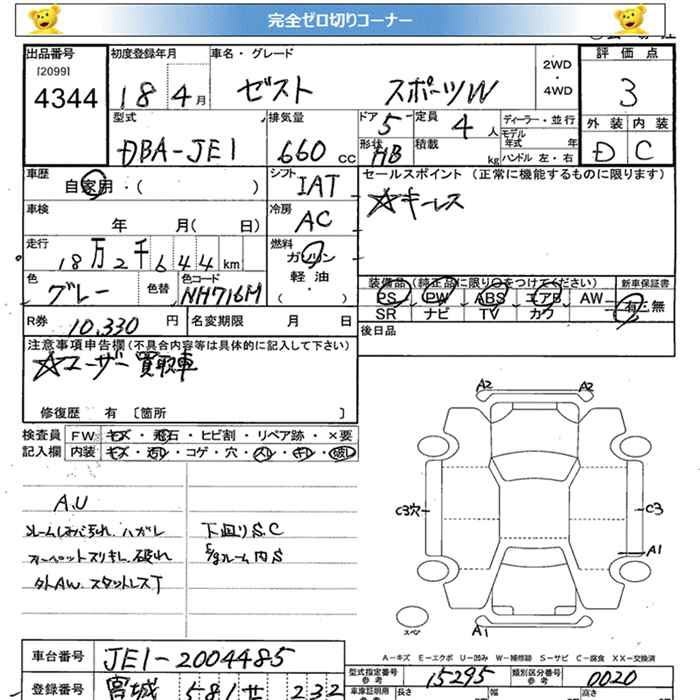 完全ゼロ切りコーナー
出品番号 初度登録年月 車名・グレード 2WD・4WD 評価点
120991
4344 18 4月 ゼスト スポーツW 3
型式 排気量 ドア 5 定員 4人 ディーラー・並行 外装 内装
DBA-JE1 660cc 形状 HB 積載 kg モデル年式 年 D C
ハンドル 左・右
車歴 自家用・( ) シフト IAT セールスポイント(正常に機能するものに限ります)
☆キーレス
車検 年 月( 日) 冷房 AC
走行 18万2千644km 燃料 ガソリン 軽油・( )
色 グレー 色替 色コード NH716M 装備品(純正品に限り○をつけてください) 新車保証書
PS PW ABS エアB AW 有・無
SR ナビ TV カワ
R券 10,330円 名変期限 月 日 後日品
注意事項申告欄(不具合内容等は具体的に記入して下さい)
☆ユーザー買取車
修復歴 有 [箇所 ]
検査員 FW キズ・飛石・ヒビ割・リペア跡・×要
記入欄 内装 キズ・汚れ・コゲ・穴・スレ・キレ・破れ
A2 A2
A.U
C3穴 C3
ルームしみ汚れ、ハガレ 下廻りS.C
カーペットスリキレ、破れ
A1
外AW、スタットレスT
スペア
A1
A-キズ E-エクボ U-凹み W-補修跡 S-サビ C-腐食 XX-交換済
車台番号 JE1-2004485
型式指定番号 参考 15295 類別区分番号 参考 0020
登録番号 宮城 581せ 232
車庫証明用 参考 長さ 幅 高さ